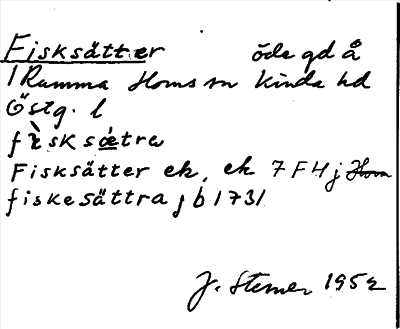 Fisksätter öde gd å
/Ramma Horns sn Kinda hd
Östg. l
fìsksǽtra
Fisksätter ek, ek 7F4j Horn
fiskesättra jb 1731
J. Sterner 1952